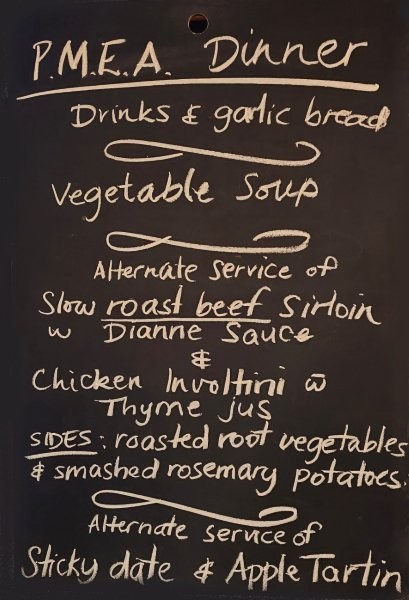 P.M.E.A. Dinner
Drinks & garlic bread
Vegetable Soup
Alternate service of
Slow roast beef Sirloin
w Dianne Sauce
&
Chicken Involtini w̄
Thyme jus
SIDES: roasted root vegetables
& smashed rosemary potatoes.
Alternate service of
Sticky date & Apple Tartin